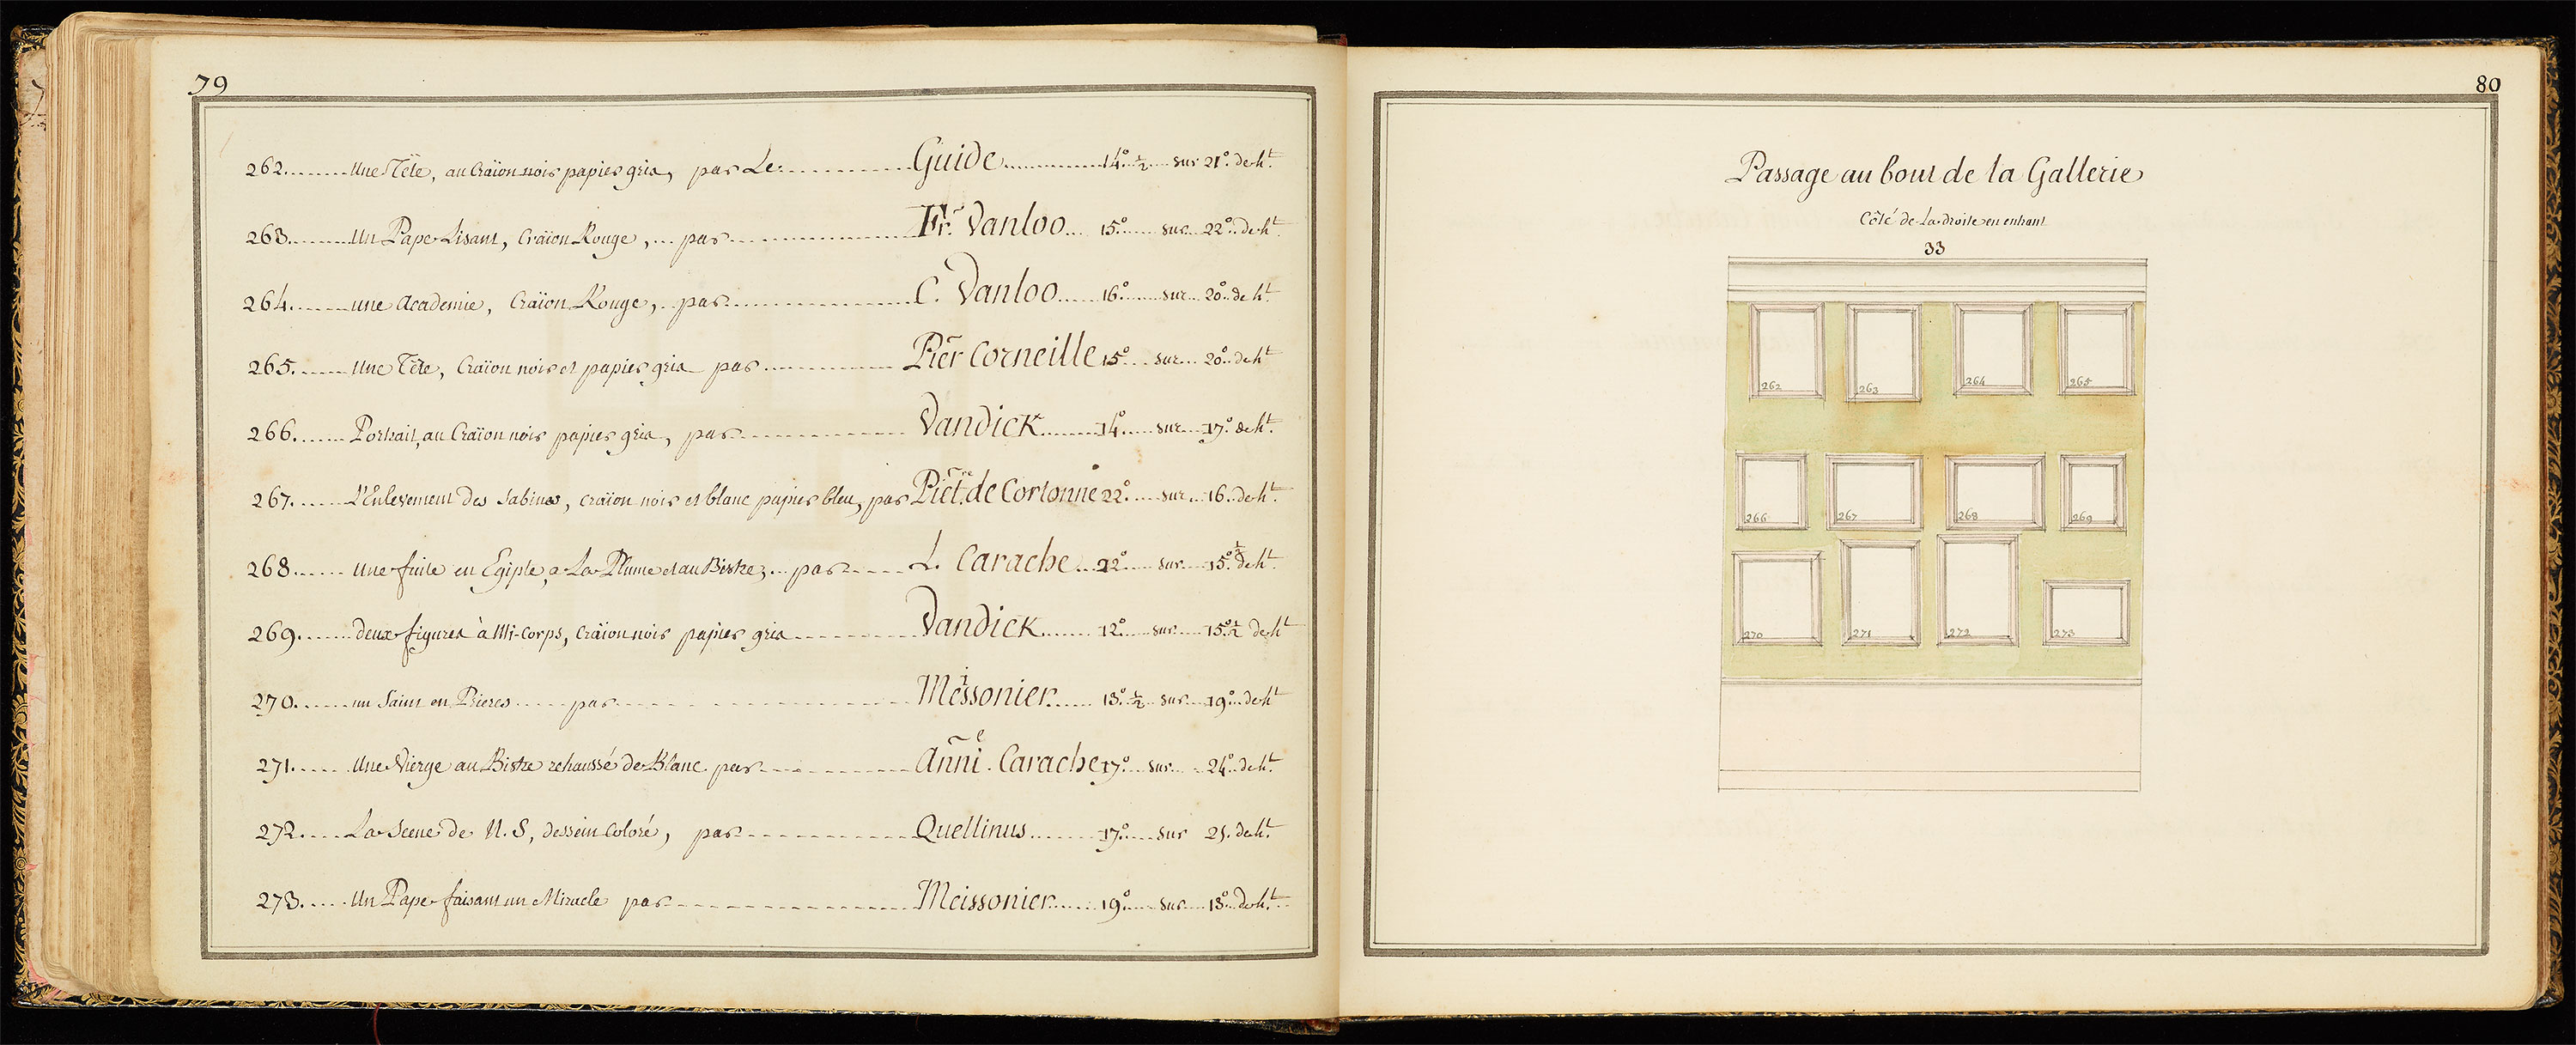 79
262........une Tête, au Craïon noir papier gris, par Le............Guide..............14°.½....sur 21°.de h.t
263........un Pape Lisant, Craïon Rouge,...par..................Fr. Vanloo....15°.......sur...22°.de h.t
264.......une Academie, Craïon Rouge,..par..................C. Vanloo......16°.......sur...20°.de h.t
265.......une Tête, Craïon noir et papier gris par..............Pier Corneille 15°....sur....20°.de h.t
266.......Portrait, au Craïon noir papier gris, par..............Vandick........14°.....sur....17°.de h.t
267......L'Enlevement des Sabines, craïon noir et blanc papier bleu, par Piet.re de Cortonne 22°.....sur...16..de h.t
268......une fuite en Egipte, a La Plume et au Bistre,...par......L. Carache...22°.....sur....15°.½ de h.t
269.......deux figures à Mi-corps, craïon noir papier gris...........Vandick.......12°.....sur....15°.½ de h.t
270.......un Saint en Prieres.....par..................Meissonier......13°.½...sur....19°..de h.t
271......une Vierge au Bistre rehaussé de Blanc par............anni.e Carache 17°....sur....24°.de h.t
272.....La Scene de N.S, dessein Coloré, par............Quellinus........17°.....sur 21.de h.t
273.....un Pape faisant un Miracle par..................Meissonier......19°.....sur....13°.de h.t
80
Passage au bout de la Gallerie
Côté de La droite en entrant
33
262 263 264 265
266 267 268 269
270 271 272 273